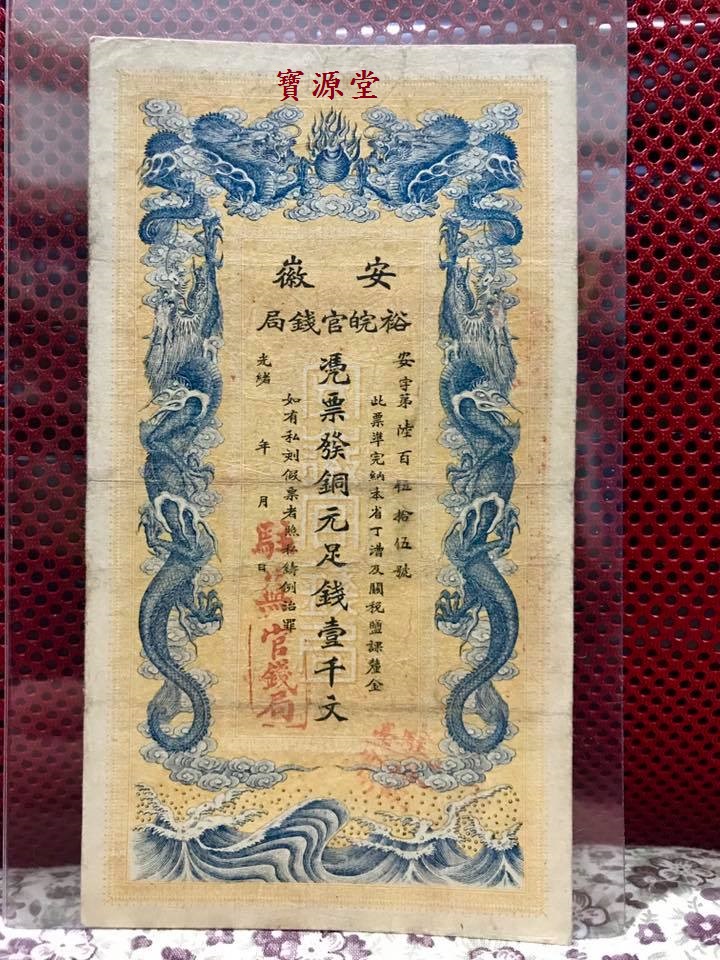 寶源堂
安徽
裕皖官錢局
安字第陸百伍拾伍號
此票準完納本省丁漕及關稅鹽課釐金
憑票發銅元足錢壹千文
如有私刻假票者照私鑄例治罪
光緒 年 月 日
駐蕪官錢局